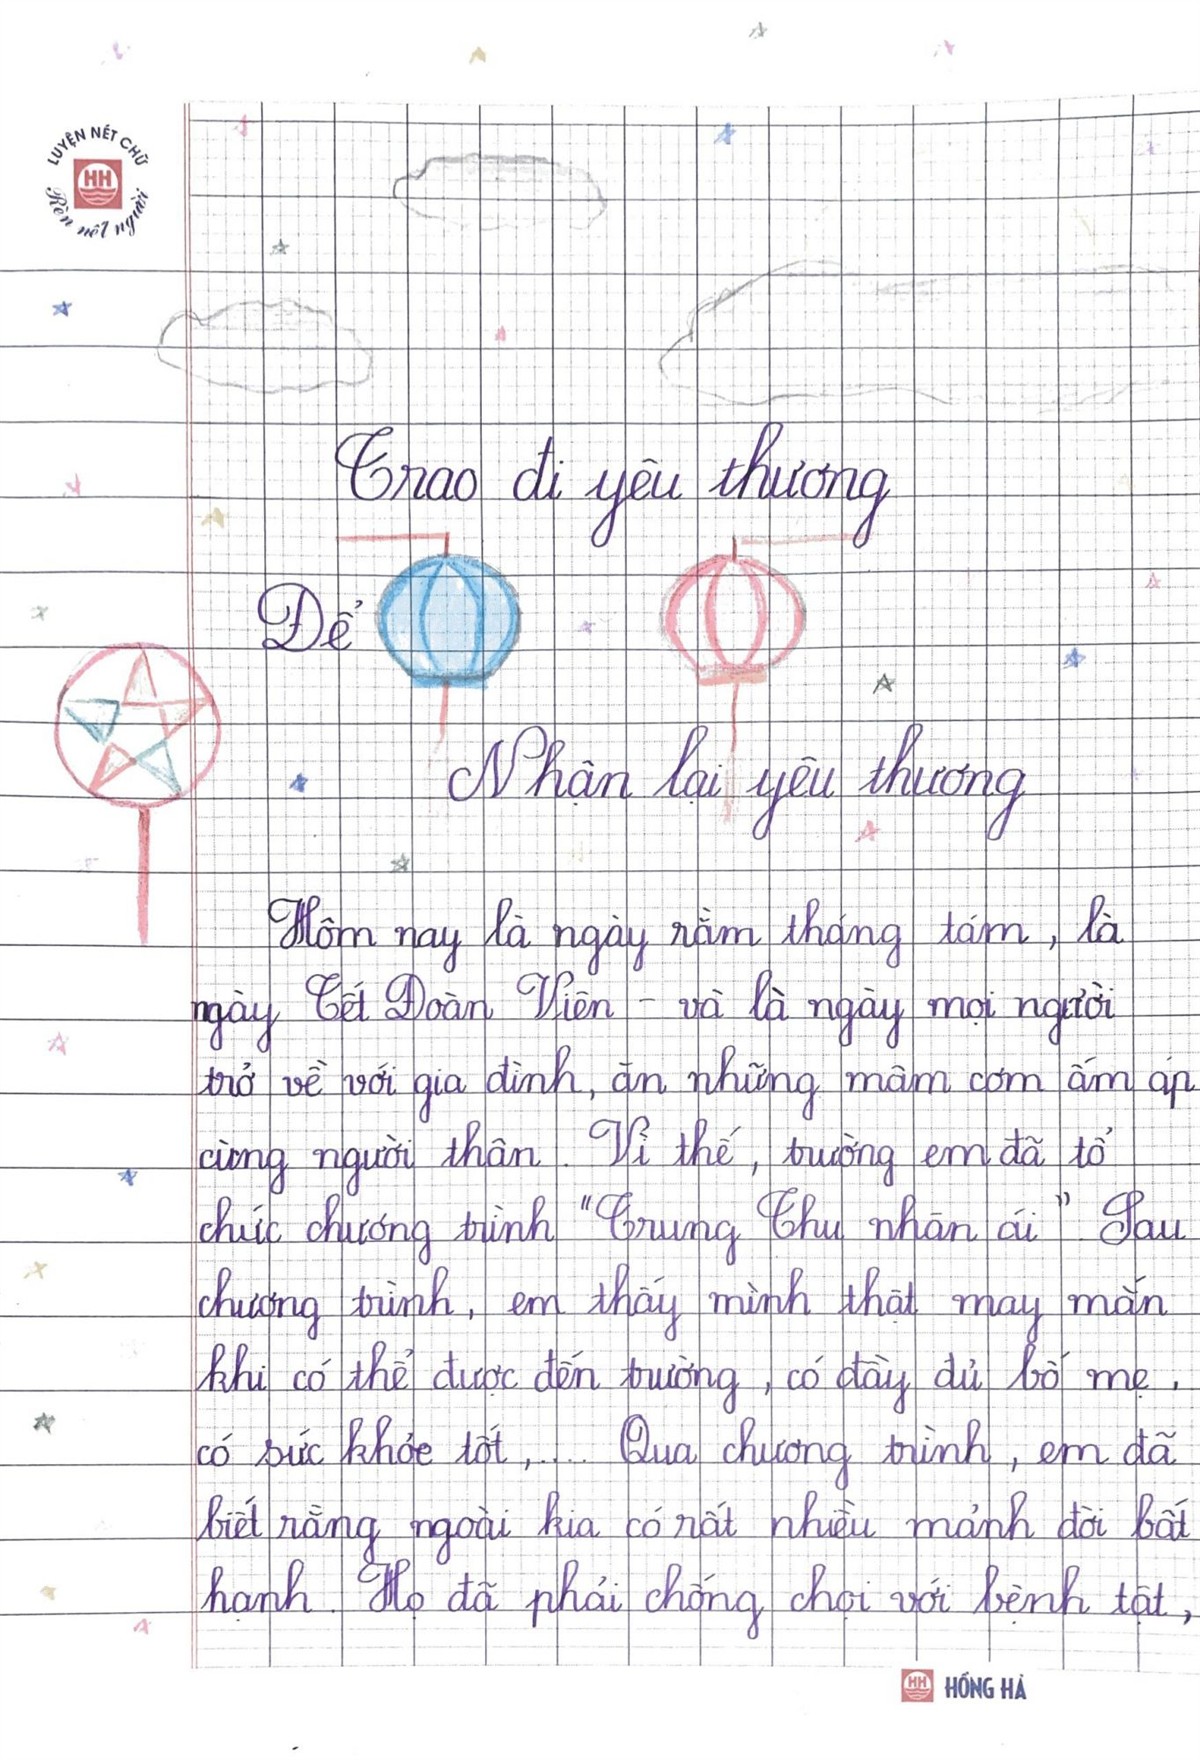 LUYỆN NÉT CHỮ
HH
Rèn nết người
Trao đi yêu thương
Để
Nhận lại yêu thương
Hôm nay là ngày rằm tháng tám, là
ngày Tết Đoàn Viên - và là ngày mọi người
trở về với gia đình, ăn những mâm cơm ấm áp
cùng người thân. Vì thế, trường em đã tổ
chức chương trình "Trung Thu nhân ái" Sau
chương trình, em thấy mình thật may mắn
khi có thể được đến trường, có đầy đủ bố mẹ,
có sức khỏe tốt,.... Qua chương trình, em đã
biết rằng ngoài kia có rất nhiều mảnh đời bất
hạnh. Họ đã phải chống chọi với bệnh tật,
HH HỒNG HÀ